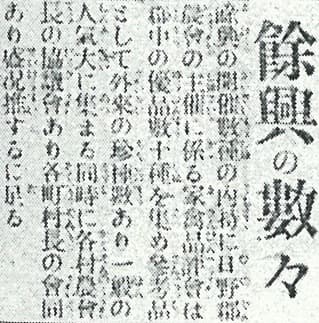 餘興の數々
餘興の興催數種の內特に日野郡
農會の主催に係る家禽品評會は
郡中の優品數十種を集め參考品
として外來の珍種數あり一般の
人氣大に集まる同時に各村農會
長の協議會あり各町村長の會同
あり盛況推するに足る